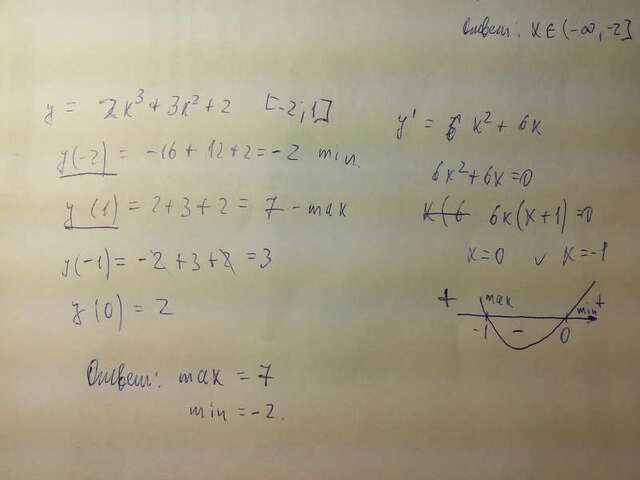 Ответ: x ∈ (-∞, -2]
y = 2x³ + 3x² + 2 [-2; 1]
y(-2) = -16 + 12 + 2 = -2 min.
y(1) = 2 + 3 + 2 = 7 - max
y(-1) = -2 + 3 + 2 = 3
y(0) = 2
Ответ: max = 7
min = -2.
y' = 6x² + 6x
6x² + 6x = 0
x(6 6x(x+1) = 0
x = 0 ∨ x = -1
+ max min +
-1 - 0